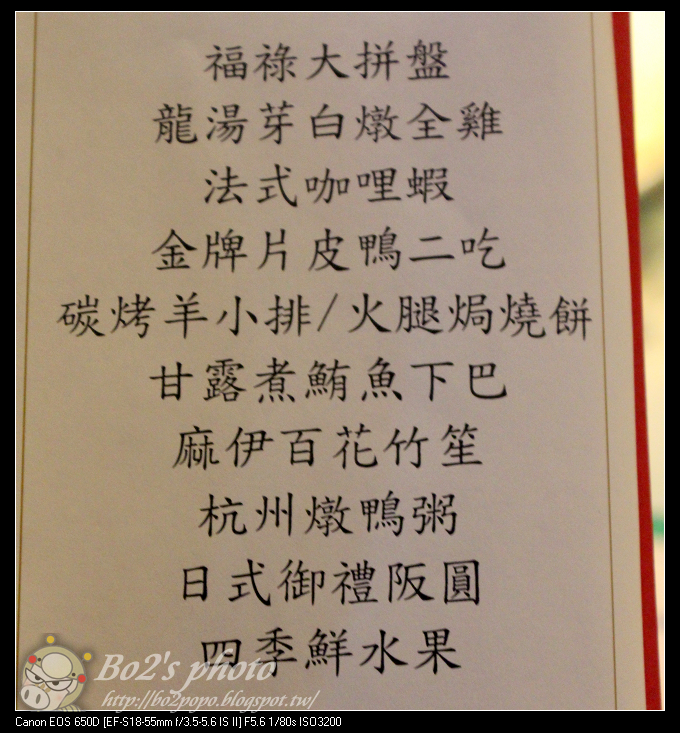 福祿大拼盤
龍湯芽白燉全雞
法式咖哩蝦
金牌片皮鴨二吃
碳烤羊小排/火腿焗燒餅
甘露煮鮪魚下巴
麻伊百花竹笙
杭州燉鴨粥
日式御禮阪圓
四季鮮水果
Bo2's photo
http://bo2popo.blogspot.tw/
Canon EOS 650D [EF-S18-55mm f/3.5-5.6 IS II] F5.6 1/80s ISO3200